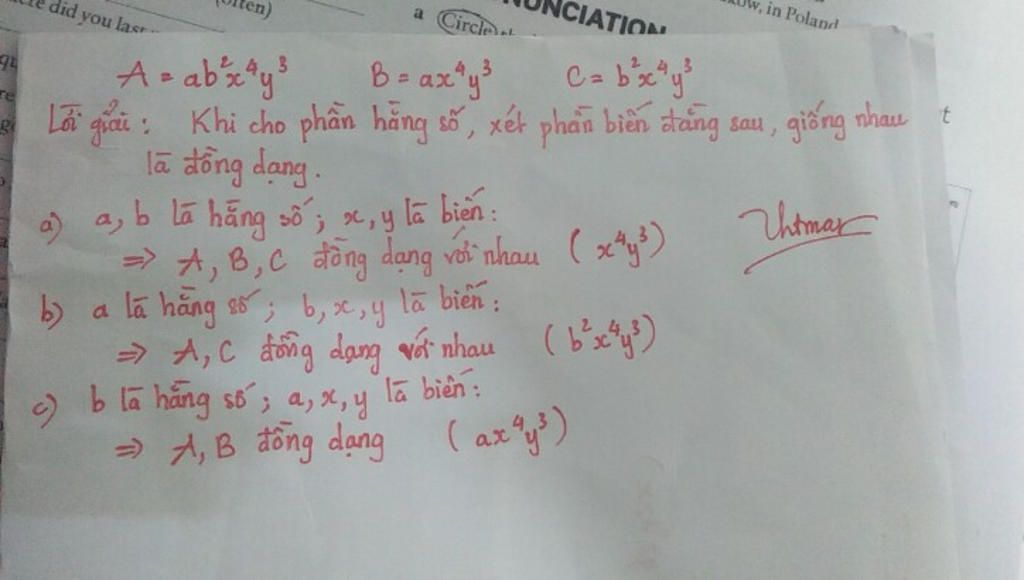 ere did you last
(often)
a Circle th
NUNCIATION
ow, in Poland
A = ab²x⁴y³ B = ax⁴y³ C = b²x⁴y³
Lời giải: Khi cho phần hằng số, xét phần biến đằng sau, giống nhau
là đồng dạng.
a) a, b là hằng số; x, y là biến:
⇒ A, B, C đồng dạng với nhau (x⁴y³)
b) a là hằng số; b, x, y là biến:
⇒ A, C đồng dạng với nhau (b²x⁴y³)
c) b là hằng số; a, x, y là biến:
⇒ A, B đồng dạng (ax⁴y³)